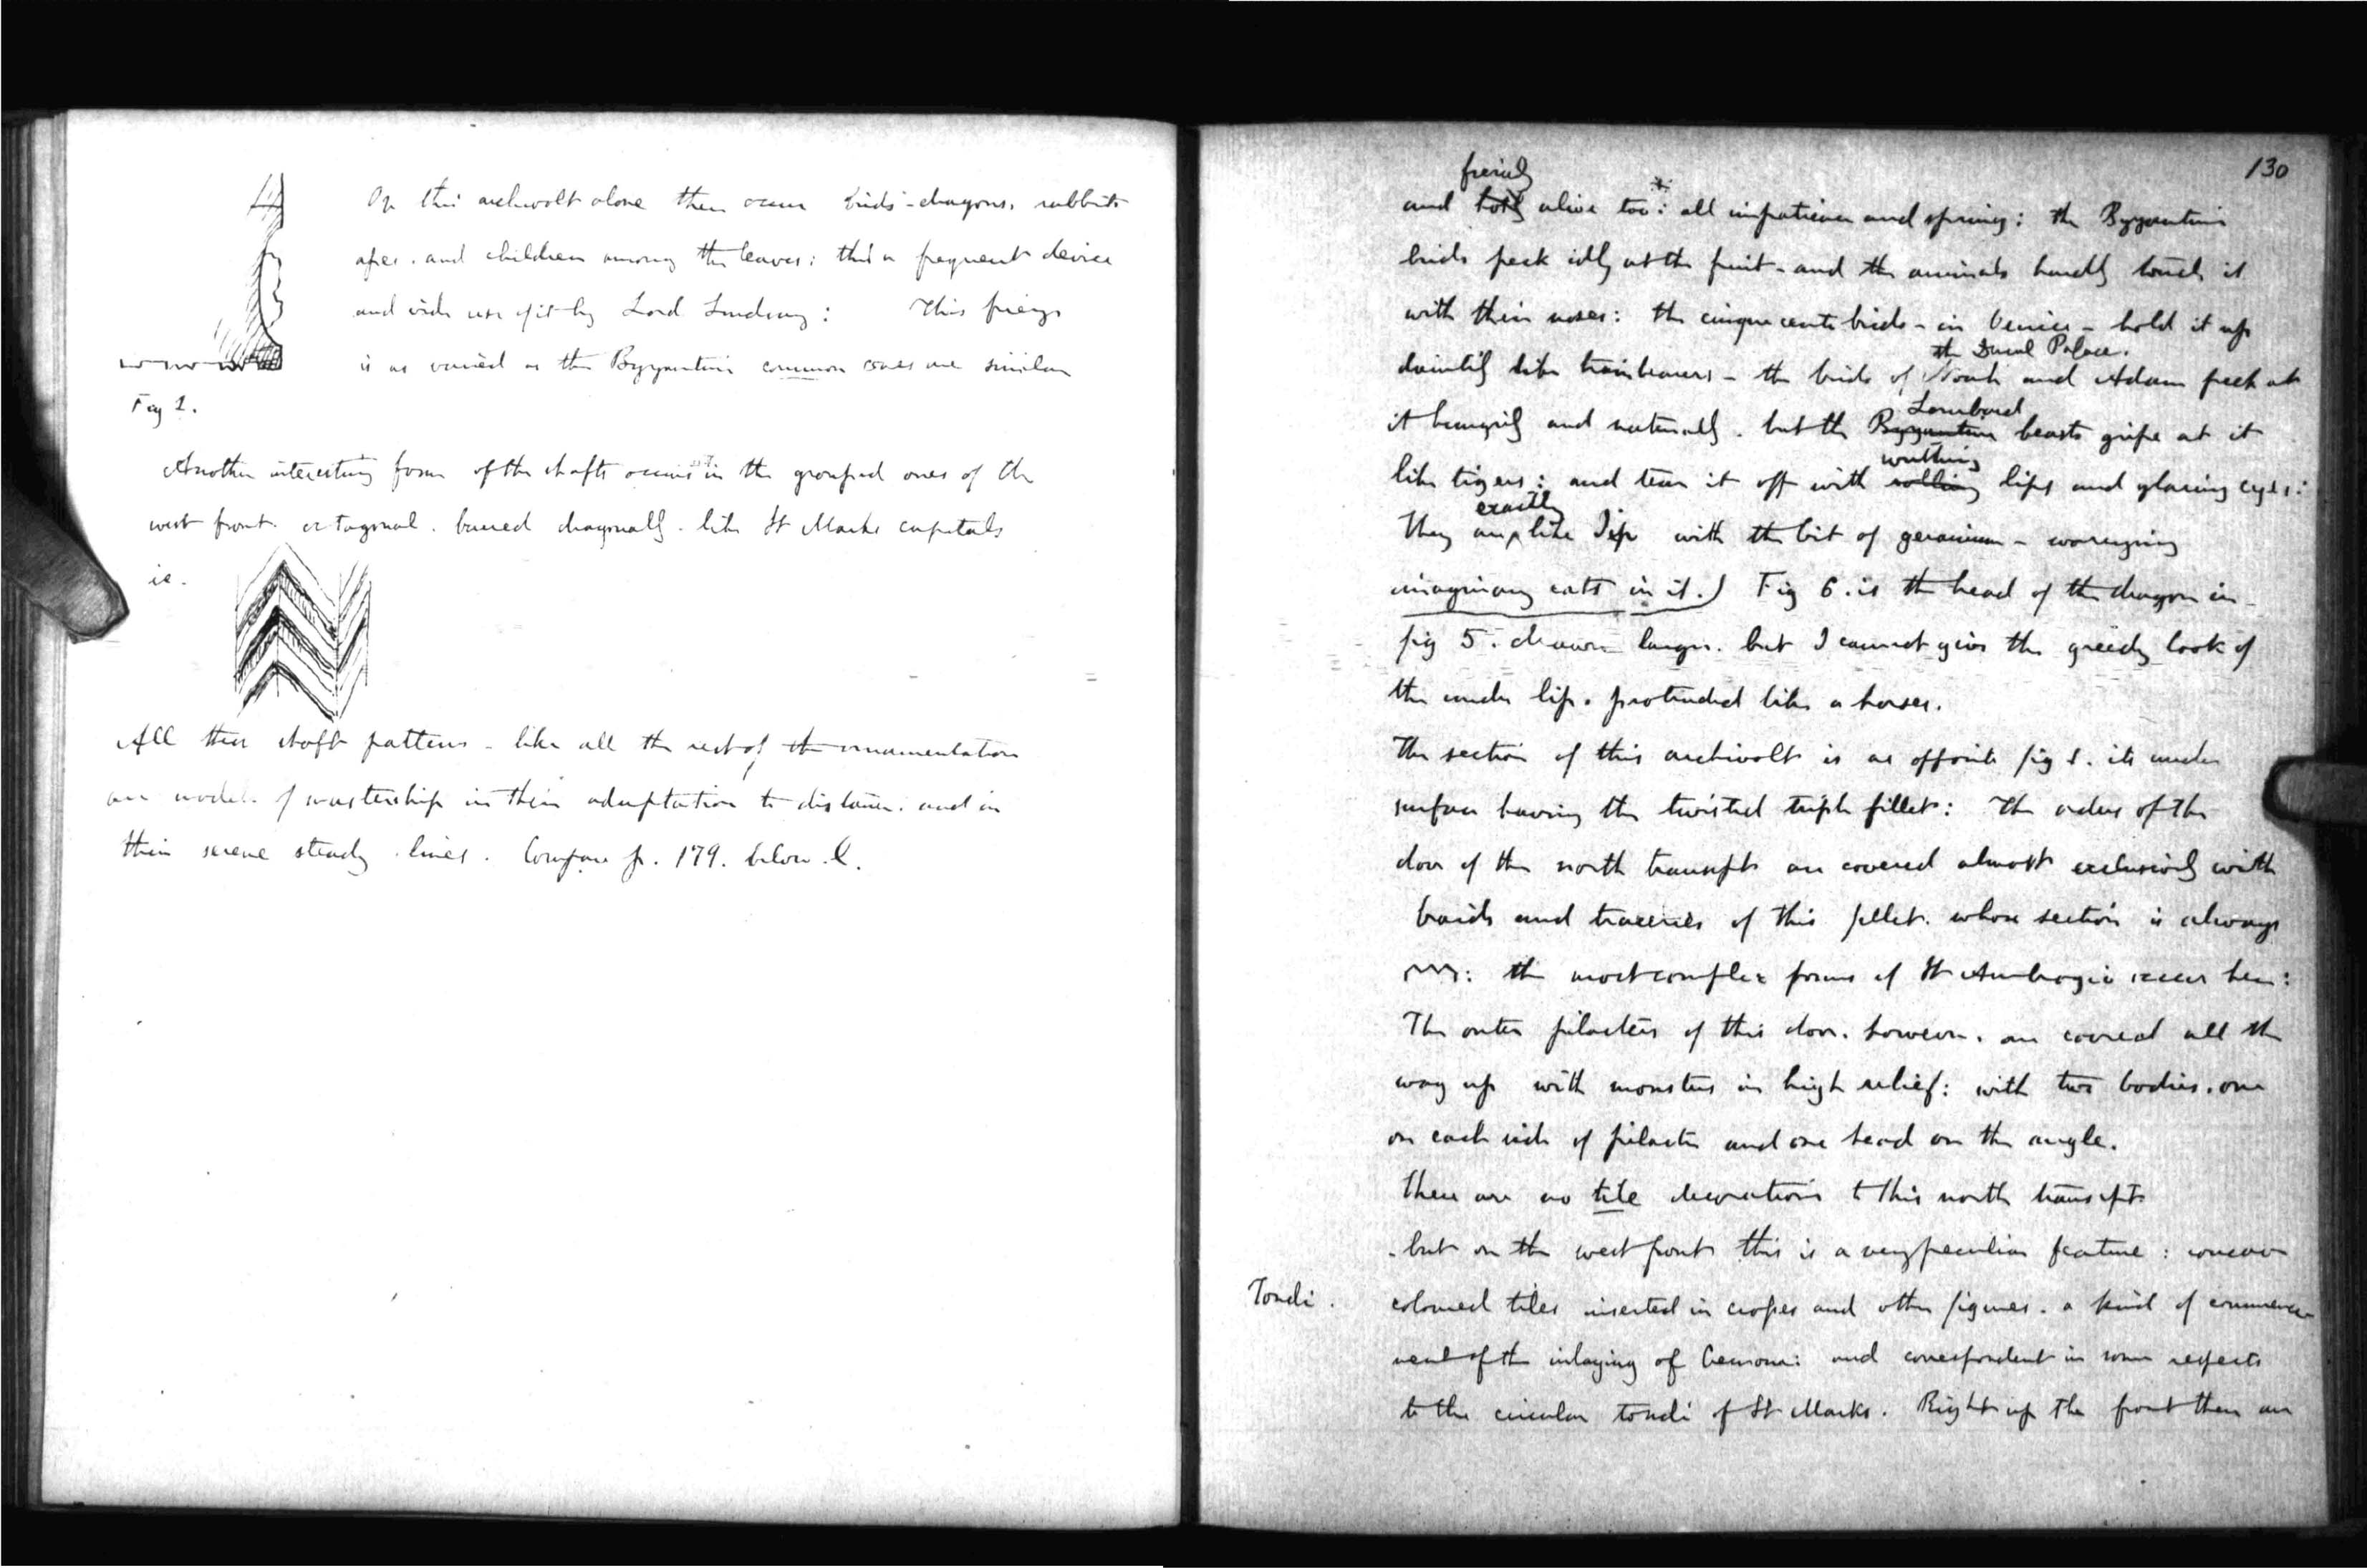 On this archivolt alone then occur birds - dragons, rabbits
apes. and children among the leaves: this a frequent device
and vide use of it by Lord Lindsay: This frieze
is as varied as the Byzantine common ones are similar
Fig 1.
Another interesting form of the shafts occurs in the grouped ones of the
west front. octagonal. barred diagonally. like St Marks capitals
ie.
All these shaft patterns - like all the rest of the ornamentation
are models of mastership in their adaptation to distance. and in
their serene steady lines. Compare p. 179. below. l.
130
fiercely
and alive too: all impatience and spring: the Byzantine
birds peck idly at the fruit - and the animals hardly touch it
with their noses: the cinquecento birds - in Venice - hold it up
the Ducal Palace.
daintily like trainbearers - the birds of Noah and Adam peck at
Lombard
it hungrily and naturally. but the Byzantine beasts gripe at it
writhing
like tigers: and tear it off with rolling lips and glaring eyes:
exactly
They are like Jip with the bit of geranium - worrying
imaginary cats in it.) Fig 6. is the head of the dragon in
fig 5. drawn larger. but I cannot give the greedy look of
the under lip. protruded like a horses.
The section of this archivolt is as opposite fig 1. its under
surface having the twisted triple fillet: The orders of the
door of the north transept are covered almost exclusively with
braids and traceries of this fillet. whose section is always
: the most complex forms of St Ambrogio occur here:
The outer pilasters of this door. however. are covered all the
way up with monsters in high relief: with two bodies. one
on each side of pilaster and one head on the angle.
There are no tile decorations to this north transept
. but on the west front this is a very peculiar feature: concave
Tondi.
coloured tiles inserted in crosses and other figures. a kind of commence-
ment of the inlaying of : and correspondent in some respects
to the circular tondi of St Marks. Right up the front there are